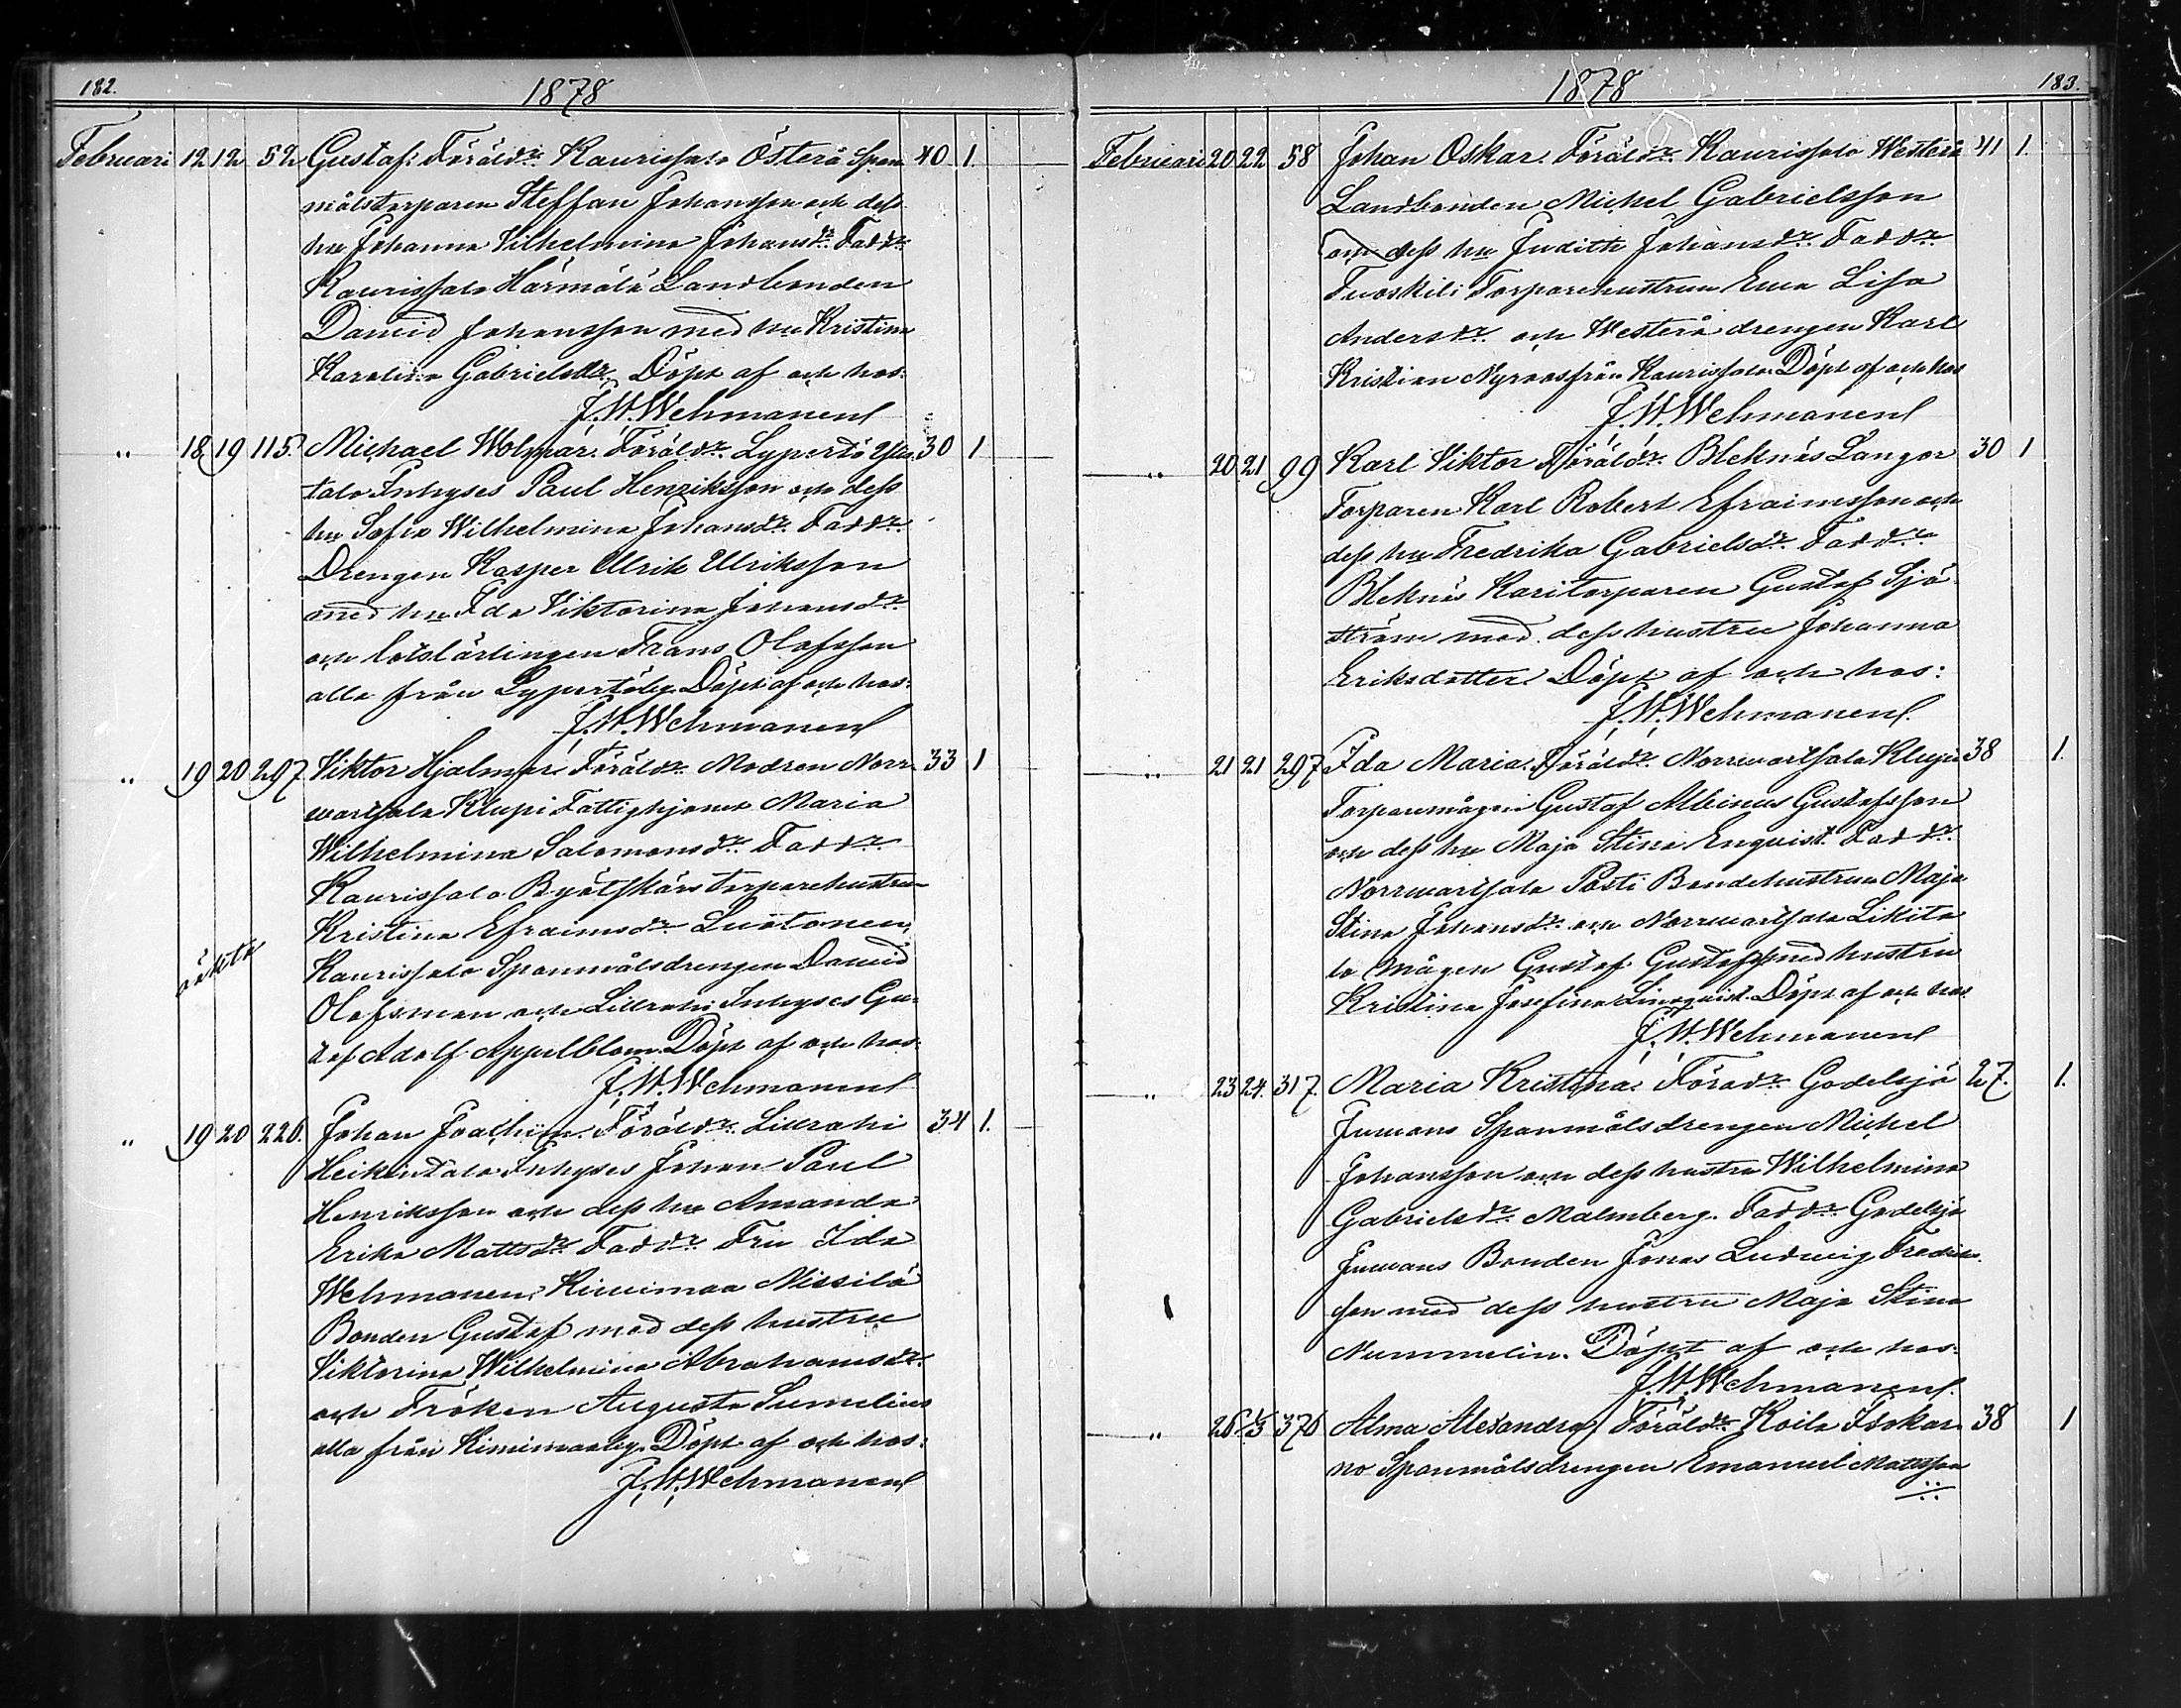 182.
1878
Februari 12 12 52 Gustaf: Föräldr. Kaurissalo Österö Span 40 1.
målstorparen Steffan Johansson och dess
hu Johanna Wilhelmina Johansdr. Faddr.
Kaurissalo Härmälä Landbonden
David Johansson med hu Kristina
Karolina Gabrielsdr. Döpt af och hos:
J. W. Wehmanen
" 18 19 115. Michael Wolmar. Föräldr. Lypertö 30 1
talo Inhyses Paul Henriksson och dess
hu Sofia Wilhelmina Johansdr. Faddr.
Drengen Kasper Ulrik Ulriksson
med hu Ida Viktorina Johansdr.
och lotslärlingen Frans Olofsson
alla från Lypertöby. Döpt af och hos:
J. W. Wehmanen
" 19 20 297 Viktor Hjalmar. Föräldr. Modren Norr 33 1
wartsala Klupi Fattighjonet Maria
Wilhelmina Salomonsdr. Faddr.
Kaurissalo Torparehustrun
Kristina Efraimsdr. Luotonen,
oäkta
Kaurissalo Spanmålsdrengen David
Olofsman och Lillrahi Inhyses Gu-
staf Adolf Appelblom. Döpt af och hos:
J. W. Wehmanen
" 19 20 226. Johan Joachim. Föräldr. Lillrahi 34 1.
Heikintalo Inhyses Johan Paul
Henriksson och dess hu Amanda
Erika Mattsdr. Faddr. Fru Ida
Wehmanen, Kiwimaa Missilä
Bonden Gustaf med dess hustru
Viktorina Wilhelmina Abrahamsdr.
och Fröken Augusta Sumelius
alla från Kiwimaaby. Döpt af och hos:
J. W. Wehmanen
1878
183.
Februari 20 22 58 Johan Oskar. Föräldr. Kaurissalo Westerö 41 1.
Landbonden Michel Gabrielsson
och dess hu Judith Johansdr. Faddr.
Torparehustrun Ewa Lisa
Andersdr. och Westerö drengen Karl
Kristian från Kaurissalo. Döpt af och hos
J. W. Wehmanen
" 20 21 99 Karl Viktor Föräldr. Bleknäs Långör 30 1
Torparen Karl Robert Efraimsson och
dess hu Fredrika Gabrielsdr. Faddr.
Bleknäs Karitorparen Gustaf Sjö-
ström med dess hustru Johanna
Eriksdotter. Döpt af och hos:
J. W. Wehmanen.
" 21 21 297 Ida Maria. Föräldr. Norrwartsala Klupi 38 1.
Torparemågen Gustaf Albinus Gustafsson
och dess hu Maja Stina Enqvist. Faddr.
Norrwartsala Pasti Bondehustrun Maja
Stina Johansdr. och Norrwartsala Likita
lo Mågen Gustaf Gustafsson med hustru
Kristina Josefina Linqvist. Döpt af och hos
J. W. Wehmanen
" 23 24. 317. Maria Kristina: Föradr. Godelsjö 27. 1.
Juwans Spanmålsdrengen Michel
Johansson och dess hustru Wilhelmina
Gabrielsdr. Malmberg. Faddr. Godelsjö
Juwans Bonden Jonas Ludwig Fredriks-
son med dess hustru Maja Stina
Nummelin. Döpt af och hos:
J. W. Wehmanen.
" 26 1/3 376 Alma Alexandra Föräldr. Koila Isokar- 38 1
no Spanmålsdrengen Emanuel Mattsson